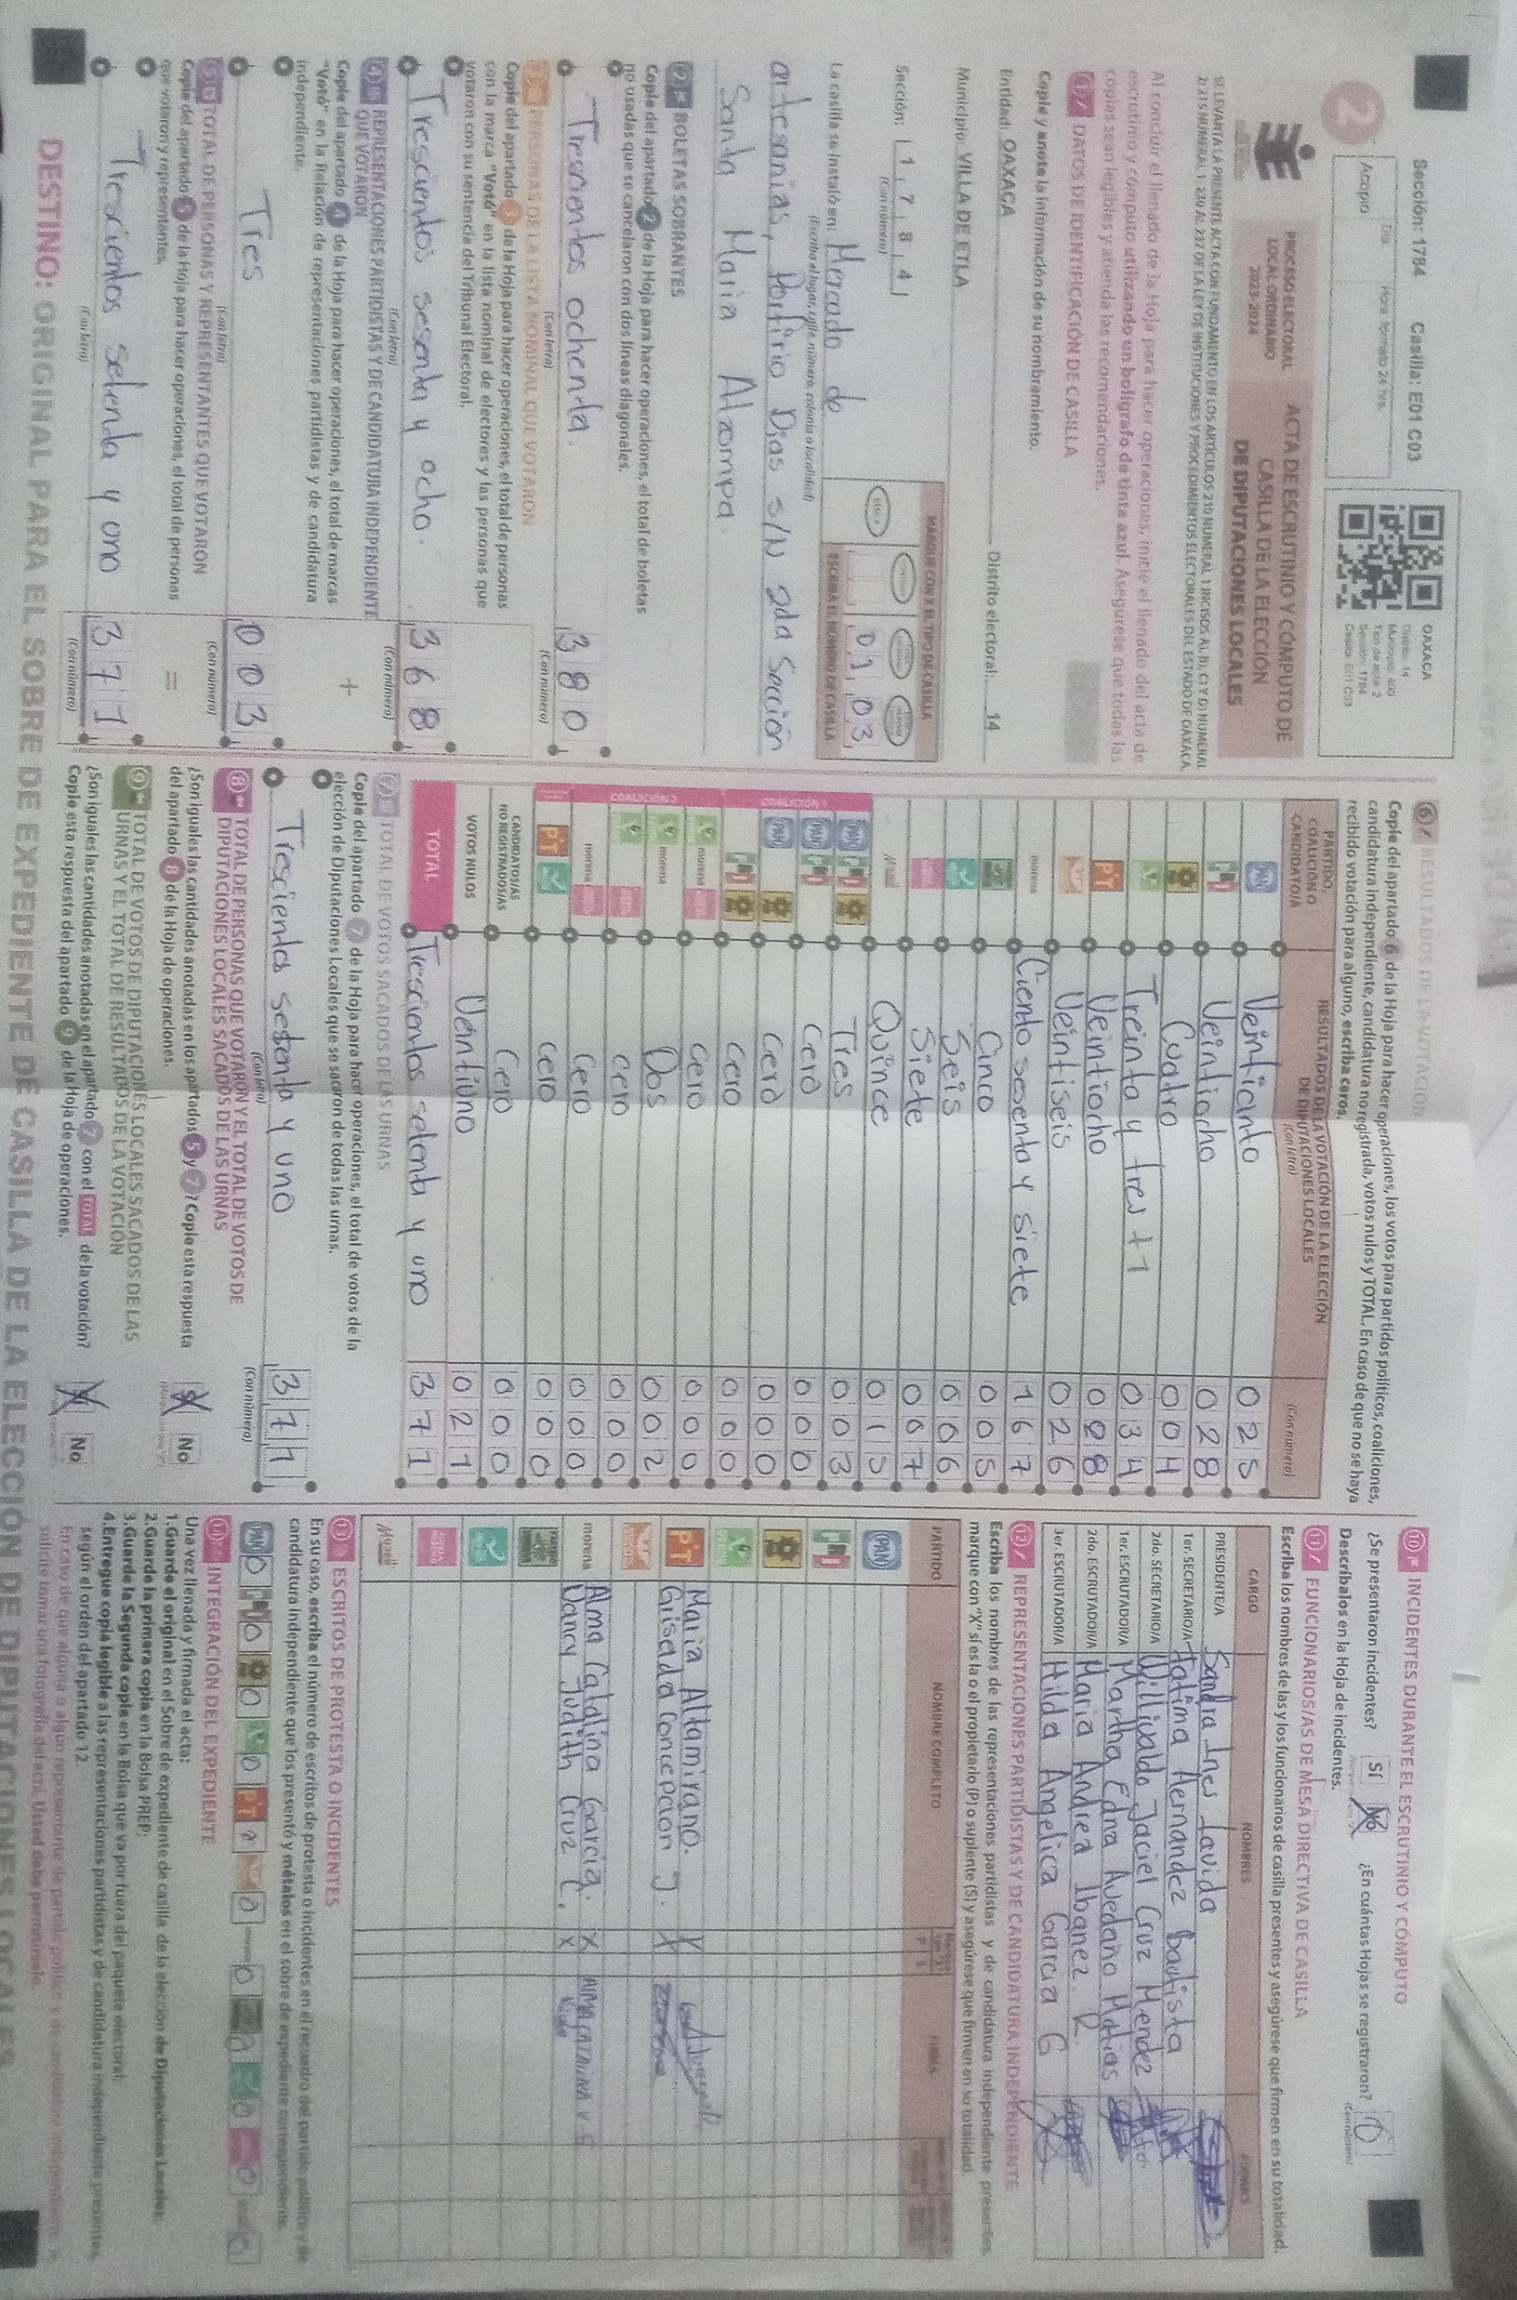 Sección: 1784 Casilla: E01 C03
2
Acopio
Día
Hora formato 24 hrs.
OAXACA
Distrito: 14
Municipio: 400
Tipo de acta: 2
Sección: 1784
Casilla: E01 C03
PROCESO ELECTORAL
LOCAL ORDINARIO
2023-2024
ACTA DE ESCRUTINIO Y CÓMPUTO DE
CASILLA DE LA ELECCIÓN
DE DIPUTACIONES LOCALES
Al concluir el llenado de la Hoja para hacer operaciones, inicie el llenado del acta de
escrutinio y cómputo utilizando un bolígrafo de tinta azul. Asegúrese que todas las
copias sean legibles y atienda las recomendaciones.
1 DATOS DE IDENTIFICACIÓN DE CASILLA
Copie y anote la información de su nombramiento.
Entidad: OAXACA Distrito electoral: 14
Municipio: VILLA DE ETLA
Sección: 1 7 8 4
(Con número)
MARQUE CON X EL TIPO DE CASILLA
ESCRIBA EL NÚMERO DE CASILLA
0 1 0 3
La casilla se instaló en: Mercado de
(Escriba el lugar, calle, número, colonia o localidad)
artesanias, Porfirio Dias s/N 2da Sección
Santa Maria Atzompa.
2 BOLETAS SOBRANTES
Copie del apartado 2 de la Hoja para hacer operaciones, el total de boletas
no usadas que se cancelaron con dos líneas diagonales.
Trescientos ochenta. 3 8 0
(Con letra) (Con número)
3 PERSONAS DE LA LISTA NOMINAL QUE VOTARON
Copie del apartado 3 de la Hoja para hacer operaciones, el total de personas
con la marca "Votó" en la lista nominal de electores y las personas que
votaron con su sentencia del Tribunal Electoral.
Trescientos sesenta y ocho. 3 6 8
(Con letra) (Con número)
4 REPRESENTACIONES PARTIDISTAS Y DE CANDIDATURA INDEPENDIENTE
QUE VOTARON
Copie del apartado 4 de la Hoja para hacer operaciones, el total de marcas
"Votó" en la Relación de representaciones partidistas y de candidatura
independiente.
+
Tres 0 0 3
(Con letra) (Con número)
5 TOTAL DE PERSONAS Y REPRESENTANTES QUE VOTARON
Copie del apartado 5 de la Hoja para hacer operaciones, el total de personas
que votaron y representantes.
=
Trescientos setenta y uno 3 7 1
(Con letra) (Con número)
6 RESULTADOS DE LA VOTACIÓN
Copie del apartado 6 de la Hoja para hacer operaciones, los votos para partidos políticos, coaliciones,
candidatura independiente, candidatura no registrada, votos nulos y TOTAL. En caso de que no se haya
recibido votación para alguno, escriba ceros.
PARTIDO,
COALICIÓN O
CANDIDATO/A
RESULTADOS DE LA VOTACIÓN DE LA ELECCIÓN
DE DIPUTACIONES LOCALES
(Con letra) (Con número)
PAN Veinticinto 0 2 5
PRI Veintiocho 0 2 8
Cuatro 0 0 4
Treinta y tres +1 0 3 4
PT Veintiocho 0 2 8
Veintiseis 0 2 6
morena Ciento sesenta y siete 1 6 7
Cinco 0 0 5
Seis 0 0 6
Siete 0 0 7
Mujer Quince 0 1 5
COALICIÓN 1
PAN PRI Tres 0 0 3
PAN PRI Cero 0 0 0
PAN Cero 0 0 0
PRI Cero 0 0 0
COALICIÓN 2
morena Cero 0 0 0
morena Dos 0 0 2
cero 0 0 0
morena Cero 0 0 0
PT cero 0 0 0
CANDIDATOS/AS
NO REGISTRADOS/AS Cero 0 0 0
VOTOS NULOS Ventiuno 0 2 1
TOTAL Trescientos setenta y uno 3 7 1
7 TOTAL DE VOTOS SACADOS DE LAS URNAS
Copie del apartado 7 de la Hoja para hacer operaciones, el total de votos de la
elección de Diputaciones Locales que se sacaron de todas las urnas.
Trescientos setenta y uno 3 7 1
(Con letra) (Con número)
8 TOTAL DE PERSONAS QUE VOTARON Y EL TOTAL DE VOTOS DE
DIPUTACIONES LOCALES SACADOS DE LAS URNAS
¿Son iguales las cantidades anotadas en los apartados 5 y 7? Copie esta respuesta
del apartado 8 de la Hoja de operaciones.
Sí No
9 TOTAL DE VOTOS DE DIPUTACIONES LOCALES SACADOS DE LAS
URNAS Y EL TOTAL DE RESULTADOS DE LA VOTACIÓN
¿Son iguales las cantidades anotadas en el apartado 7 con el TOTAL de la votación?
Copie esta respuesta del apartado 9 de la Hoja de operaciones.
Sí No
10 INCIDENTES DURANTE EL ESCRUTINIO Y CÓMPUTO
¿Se presentaron incidentes? Sí No ¿En cuántas Hojas se registraron? 0
Descríbalos en la Hoja de incidentes. (Con número)
11 FUNCIONARIOS/AS DE MESA DIRECTIVA DE CASILLA
Escriba los nombres de las y los funcionarios de casilla presentes y asegúrese que firmen en su totalidad.
CARGO NOMBRES FIRMAS
PRESIDENTE/A Sandra Ines Lavida
1er. SECRETARIO/A Fatima Hernandez Bautista
2do. SECRETARIO/A Willivaldo Jaciel Cruz Mendez
1er. ESCRUTADOR/A Martha Edna Avedaño Matias
2do. ESCRUTADOR/A Maria Andrea Ibanez R.
3er. ESCRUTADOR/A Hilda Angelica Garcia G
12 REPRESENTACIONES PARTIDISTAS Y DE CANDIDATURA INDEPENDIENTE
Escriba los nombres de las representaciones partidistas y de candidatura independiente presentes,
marque con "X" si es la o el propietario (P) o suplente (S) y asegúrese que firmen en su totalidad.
PARTIDO NOMBRE COMPLETO FIRMA
PAN
PRI
PT Maria Altamirano. X
Grisedd Concepcion J. X
morena Alma Catalina Garcia. X ALMA CATALINA V G
Dancy Judith Cruz C. X
Mujer
13 ESCRITOS DE PROTESTA O INCIDENTES
En su caso, escriba el número de escritos de protesta o incidentes en el recuadro del partido político y de
candidatura independiente que los presentó y métalos en el sobre de expediente correspondiente.
PAN 0 PRI 0 0 0 PT 0 0 morena 0 0 0 0 0
14 INTEGRACIÓN DEL EXPEDIENTE
Una vez llenada y firmada el acta:
1.Guarde el original en el Sobre de expediente de casilla de la elección de Diputaciones Locales;
2.Guarde la primera copia en la Bolsa PREP;
3.Guarde la Segunda copia en la Bolsa que va por fuera del paquete electoral;
4.Entregue copia legible a las representaciones partidistas y de candidatura independiente presentes,
según el orden del apartado 12.
En caso de que alguna o algún representante de partido político y de candidatura independiente
solicite tomar una fotografía del acta, Usted debe permitírselo.
DESTINO: ORIGINAL PARA EL SOBRE DE EXPEDIENTE DE CASILLA DE LA ELECCIÓN DE DIPUTACIONES LOCALES